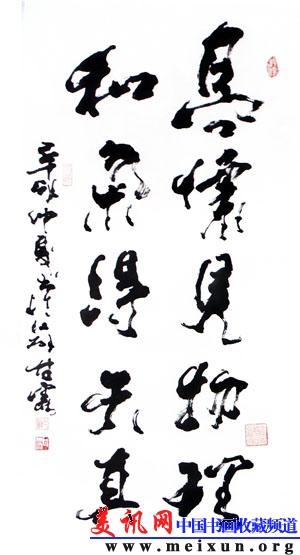 高懷見物理
和氣得天真
辛卯仲夏書於
美讯网 中国书画收藏频道
www.meixun.org